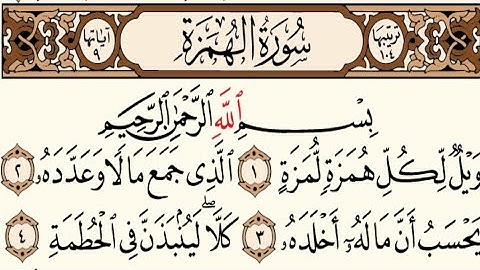 ترتيبها ١٠٤ سُورَةُ الهُمَزَةِ آياتها ٩
بِسْمِ ٱللَّهِ ٱلرَّحْمَٰنِ ٱلرَّحِيمِ
وَيْلٌ لِّكُلِّ هُمَزَةٍ لُّمَزَةٍ ١ ٱلَّذِى جَمَعَ مَالًا وَعَدَّدَهُۥ ٢
يَحْسَبُ أَنَّ مَالَهُۥٓ أَخْلَدَهُۥ ٣ كَلَّا ۖ لَيُنۢبَذَنَّ فِى ٱلْحُطَمَةِ ٤